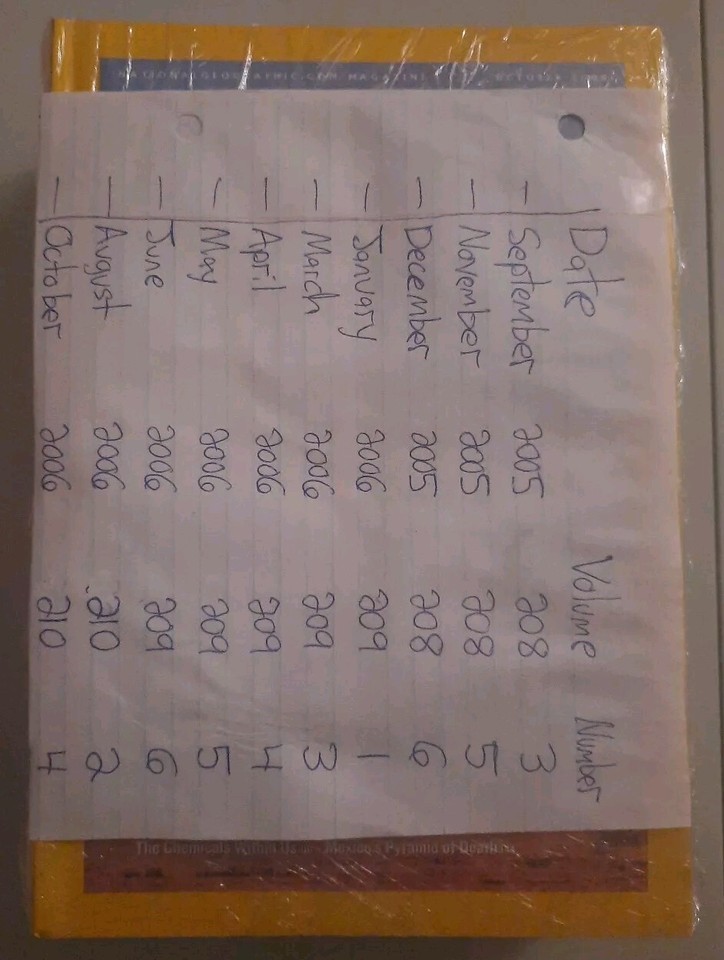 NATIONALGEOGRAPHIC.COM/MAGAZINE OCTOBER 2006
Date Volume Number
- September 2005 208 3
- November 2005 208 5
- December 2005 208 6
- January 2006 209 1
- March 2006 209 3
- April 2006 209 4
- May 2006 209 5
- June 2006 209 6
- August 2006 210 2
- October 2006 210 4
The Chemicals Within Us Mexico's Pyramid of Death